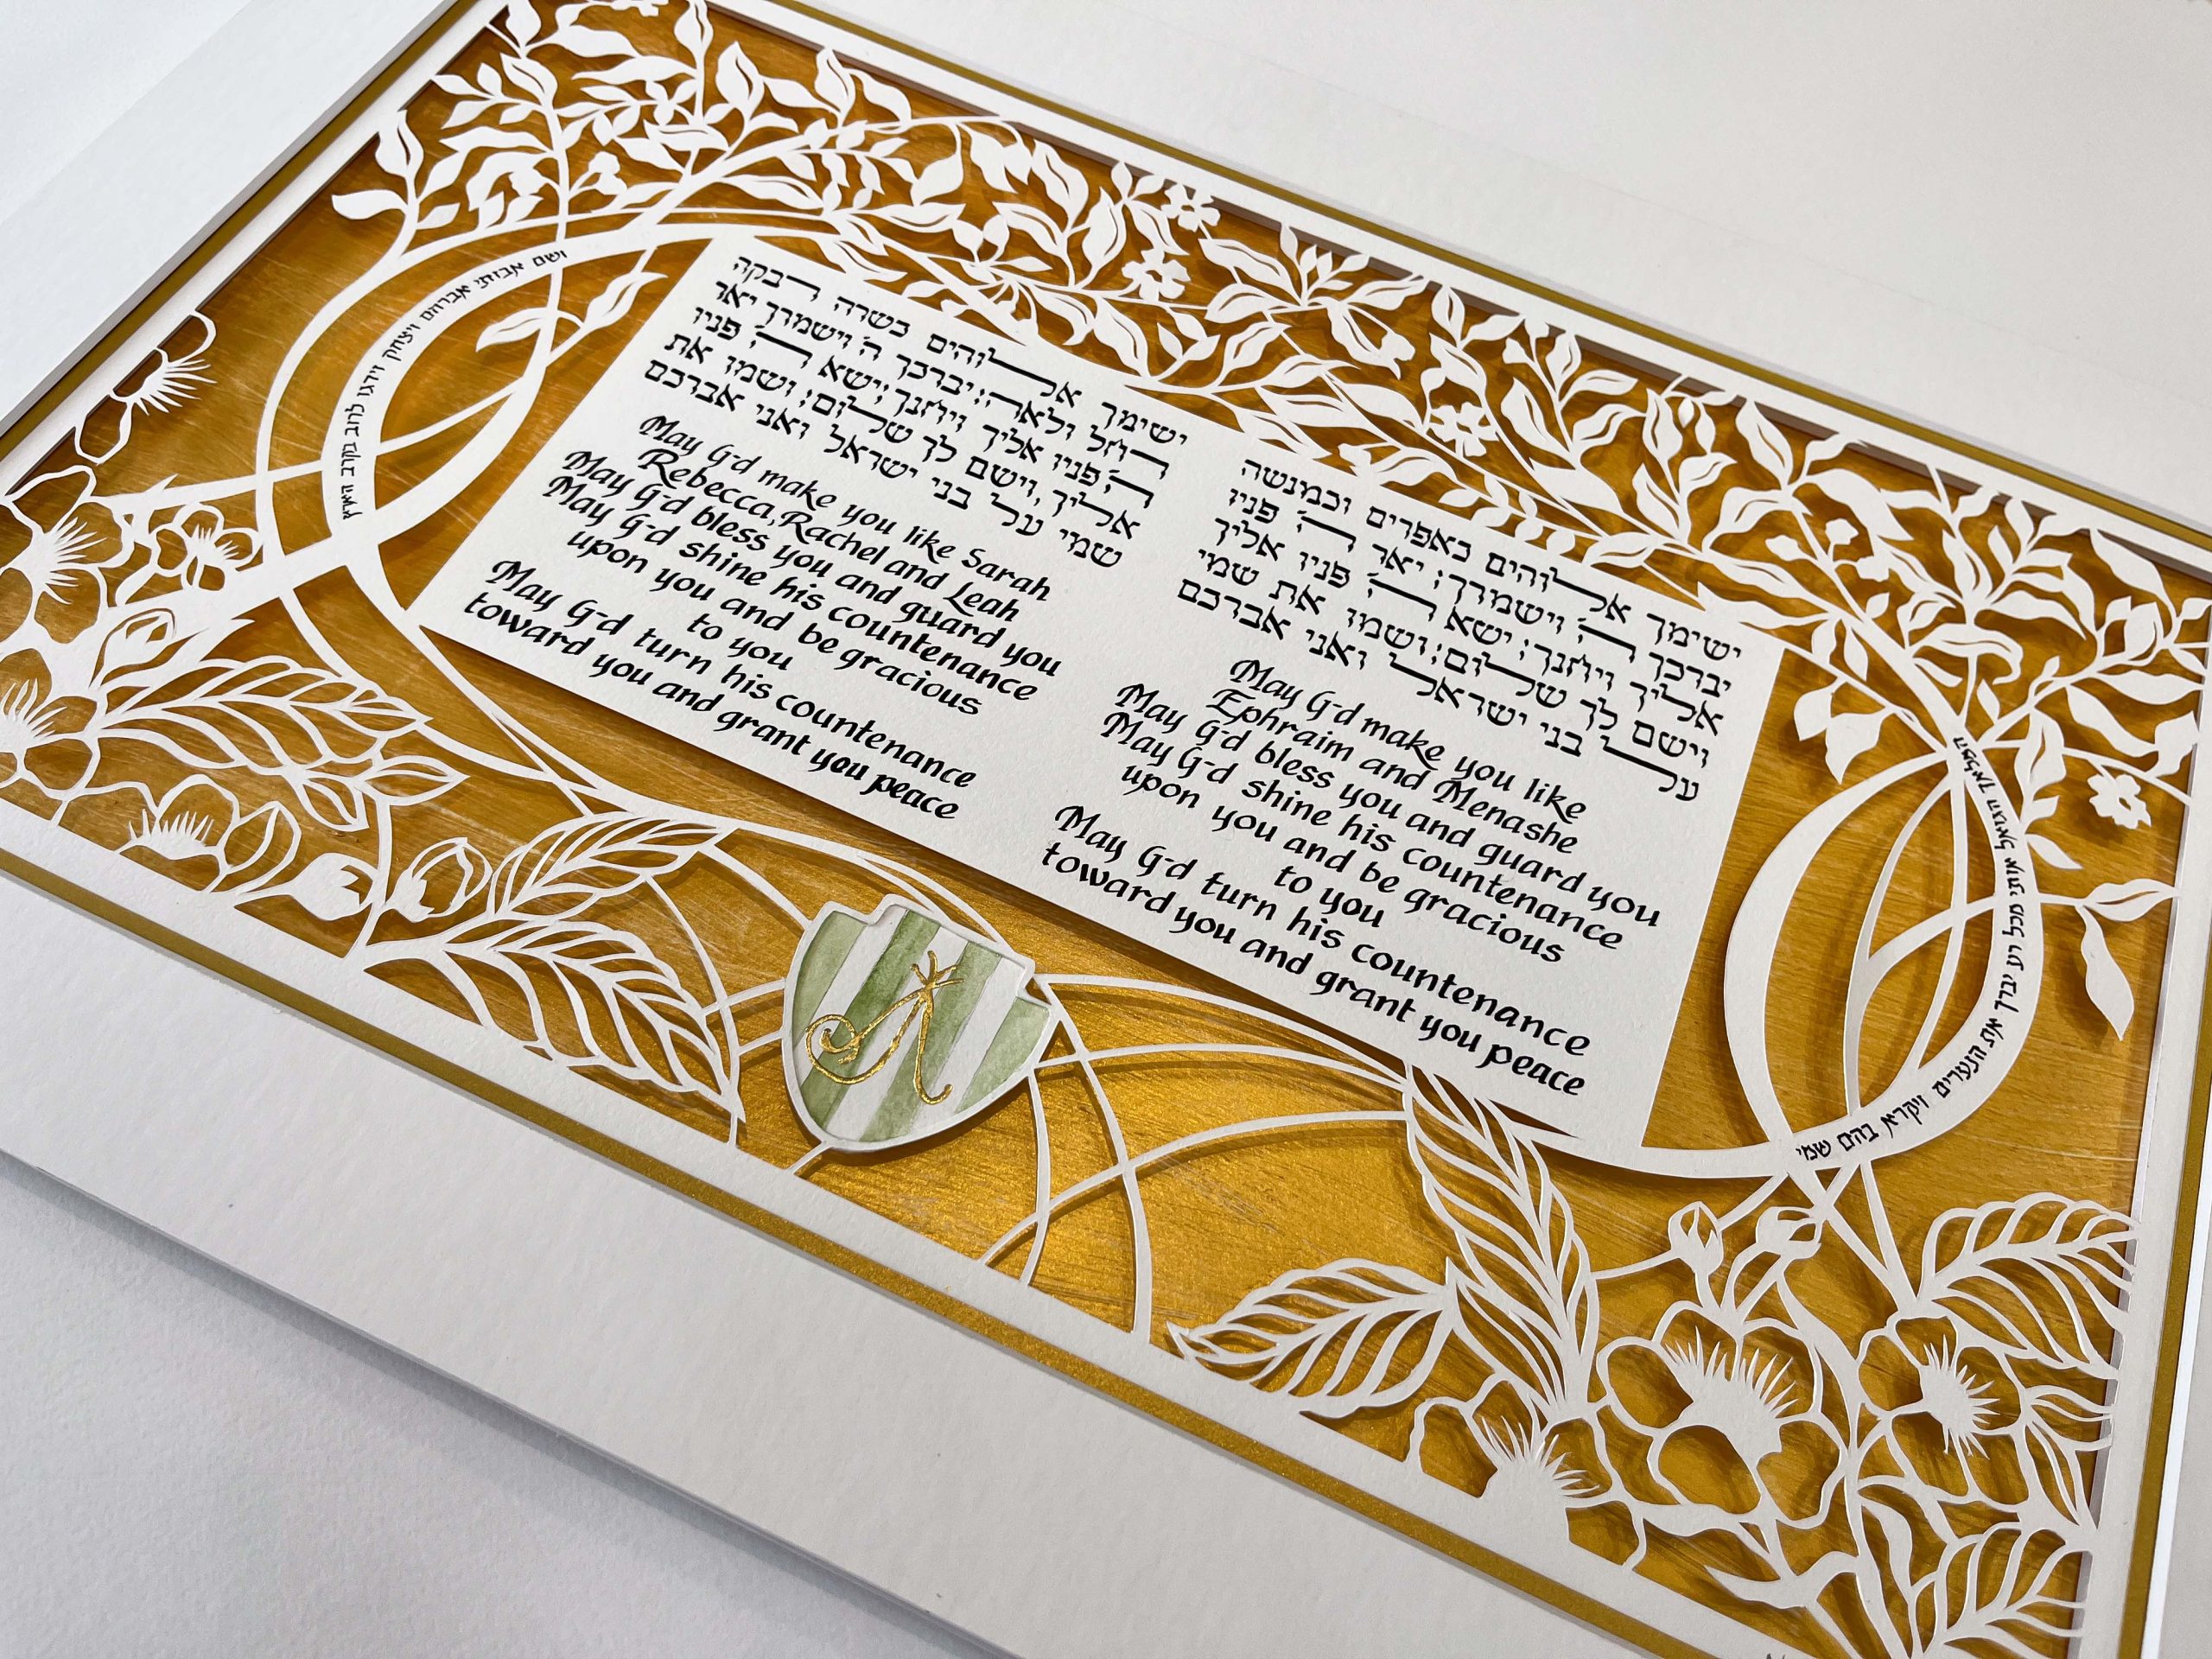 המלאך הגואל אותי מכל רע יברך את הנערים ויקרא בהם שמי
ישימך אלוהים כאפרים וכמנשה
יברכך ה' וישמרך; יאר ה' פניו
אליך ויחנך; ישא ה' פניו אליך
וישם לך שלום; ושמו את שמי
על בני ישראל ואני אברכם
May G-d make you like
Ephraim and Menashe
May G-d bless you and guard you
May G-d shine his countenance
upon you and be gracious
to you
May G-d turn his countenance
toward you and grant you peace
ישימך אלוהים כשרה רבקה
רחל ולאה: יברכך ה' וישמרך יאר
ה' פניו אליך ויחנך; ישא ה' פניו
אליך, וישם לך שלום; ושמו את
שמי על בני ישראל ואני אברכם
May G-d make you like Sarah
Rebecca, Rachel and Leah
May G-d bless you and guard you
May G-d shine his countenance
upon you and be gracious
to you
May G-d turn his countenance
toward you and grant you peace
ושם אבותי אברהם ויצחק וידגו לרוב בקרב הארץ